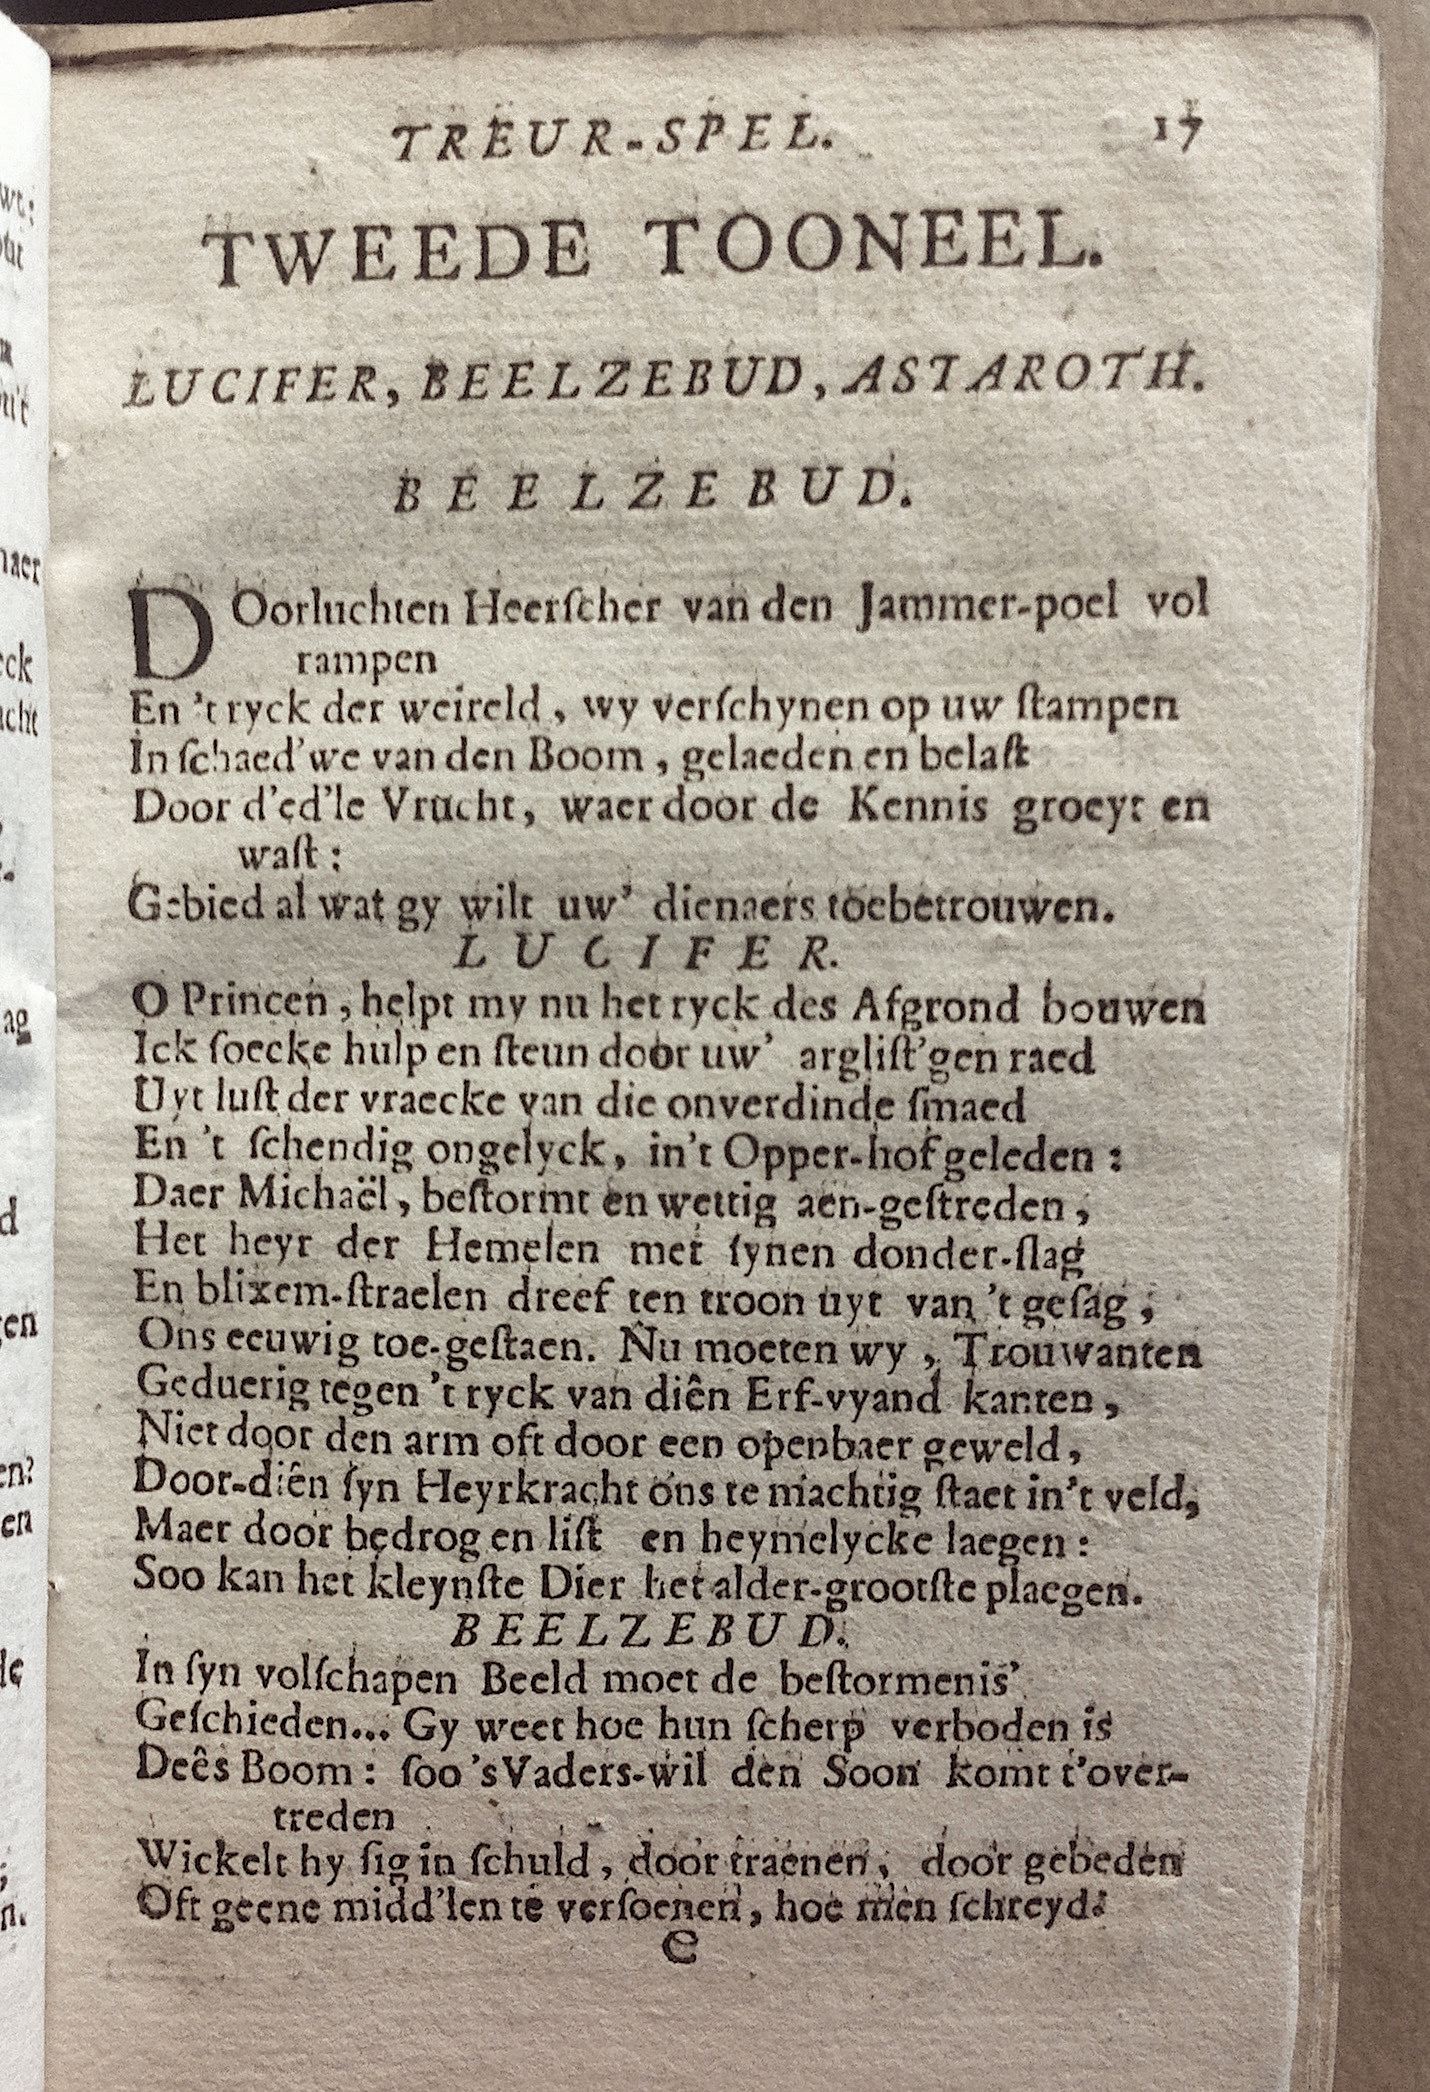 TREUR-SPEL. 17
TWEEDE TOONEEL.
LUCIFER, BEELZEBUD, ASTAROTH.
BEELZEBUD.
DOorluchten Heerſcher van den Jammer-poel vol
rampen
En 't ryck der weireld, wy verſchynen op uw ſtampen
In ſchaed'we van den Boom, gelaeden en belaſt
Door d'ed'le Vrucht, waer door de Kennis groeyt en
waſt:
Gebied al wat gy wilt uw' dienaers toebetrouwen.
LUCIFER.
O Princen, helpt my nu het ryck des Afgrond bouwen
Ick ſoecke hulp en ſteun door uw' argliſt'gen raed
Uyt luſt der vraecke van die onverdinde ſmaed
En 't ſchendig ongelyck, in't Opper-hof geleden:
Daer Michaël, beſtormt en wettig aen-geſtreden,
Het heyr der Hemelen met ſynen donder-ſlag
En blixem-ſtraelen dreef ten troon uyt van 't geſag,
Ons eeuwig toe-geſtaen. Nu moeten wy, Trouwanten
Geduerig tegen 't ryck van diên Erf-vyand kanten,
Niet door den arm oft door een openbaer geweld,
Door-diên ſyn Heyrkracht ons te machtig ſtaet in't veld,
Maer door bedrog en liſt en heymelycke laegen:
Soo kan het kleynſte Dier het alder-grootſte plaegen.
BEELZEBUD.
In ſyn volſchapen Beeld moet de beſtormenis'
Geſchieden... Gy weet hoe hun ſcherp verboden is
Deês Boom: ſoo 's Vaders-wil den Soon komt t'over-
treden
Wickelt hy ſig in ſchuld, door traenen, door gebeden
Oft geene midd'len te verſoenen, hoe men ſchreyd:
C